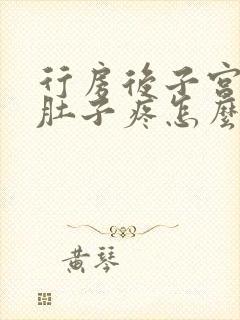 行房後子宮
肚子疼怎麼
黄琴